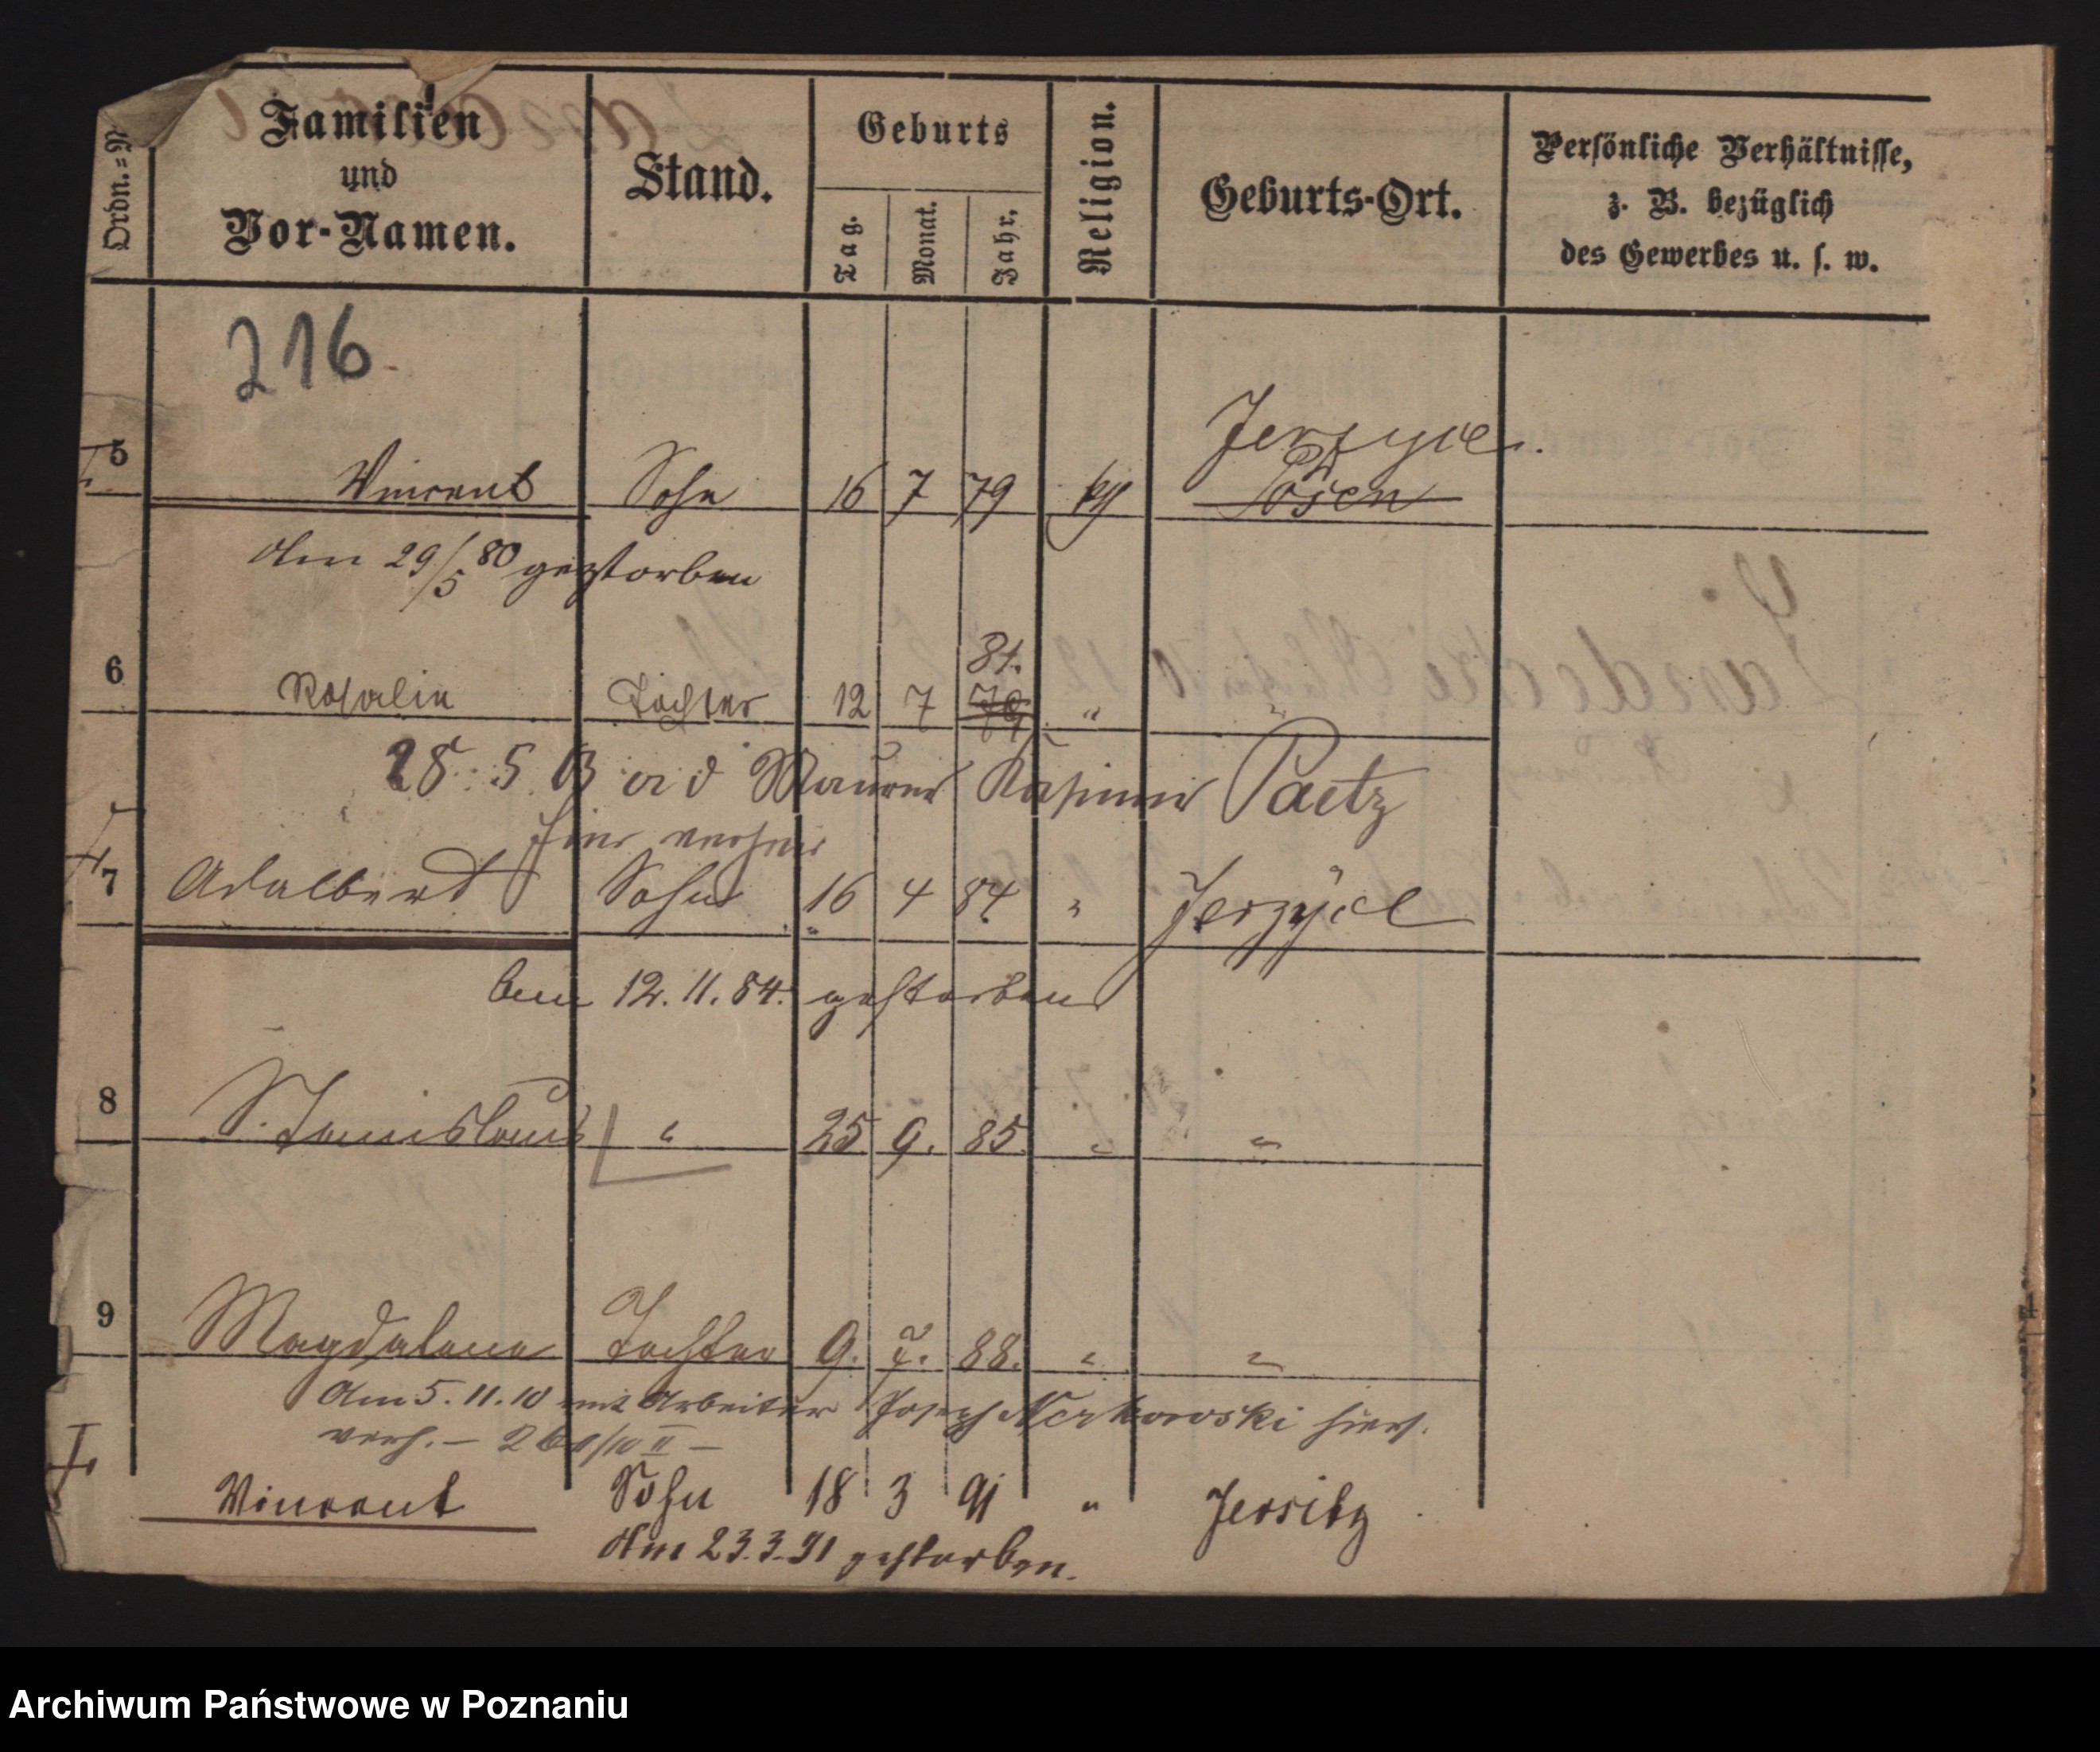 Ordn.=N
Familien
und
Vor-Namen.
Stand.
Geburts
Tag.
Monat.
Jahr.
Religion.
Geburts-Ort.
Persönliche Verhältnisse,
z. B. bezüglich
des Gewerbes u. s. w.
216
Jerzyce.
5 Vincent Sohn 16 7 79 kth Posen
Am 29/5 80 gestorben
81.
6 Rosalie Tochter 12 7 79 "
28. 5. Maurer Kasimir Paetz
hier
7 Adalbert Sohn 16 4 84 " Jerzyce
am 12. 11. 84. gestorben
8 Stanislaus " 25 9. 85. " "
9 Magdalena Tochter 9. 7. 88. " "
Am 5. 11. 10 mit Arbeiter Joseph hier
verh. —
Vincent Sohn 18 3 91 " Jersitz
Am 23.3.91 gestorben.
Archiwum Państwowe w Poznaniu